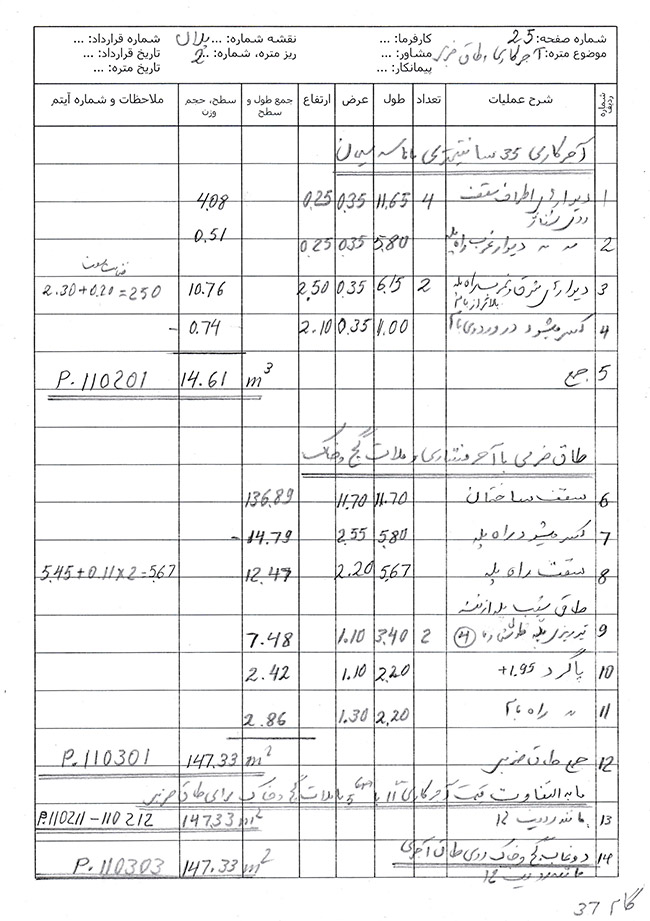 شماره صفحه: 25 کارفرما: ... نقشه شماره: ... پلان شماره قرارداد: ...
موضوع متره: آجرکاری و طاق ضربی مشاور: ... ریز متره، شماره: ..2 تاریخ قرارداد: ...
پیمانکار: ... تاریخ متره: ...
شماره ردیف شرح عملیات تعداد طول عرض ارتفاع جمع طول و سطح سطح، حجم وزن ملاحظات و شماره آیتم
آجرکاری 35 سانتیمتری با ماسه سیمان
1 دیوارهای اطراف سقف روی شناژ 4 11.65 0.35 0.25 4.08
2 دیوار غرب راه پله 5.80 0.35 0.25 0.51
3 دیوارهای شرق و غرب راه پله بالاتر از بام 2 6.15 0.35 2.50 10.76 2.30+0.20=250
4 کسر میشود در ورودی بام 1.00 0.35 2.10 - 0.74
5 جمع 14.61 m³ P.110201
طاق ضربی با آجر فشاری و ملات گچ و خاک
6 سقف ساختمان 11.70 11.70 136.89
7 کسر میشود راه پله 5.80 2.55 - 14.79
8 سقف راه پله 5.67 2.20 12.47 5.45+0.11×2=5.67
طاق شیب پله از نقشه
9 تیرریزی پله 2 3.40 1.10 7.48
10 پاگرد +1.95 2.20 1.10 2.42
11 راه بام 2.20 1.30 2.86
12 جمع طاق ضربی 147.33 m² P.110301
مابه التفاوت قیمت آجرکاری با ملات گچ و خاک برای طاق ضربی
13 مانند ردیف 12 147.33 m² P.110211-110212
14 دوغاب گچ و خاک روی طاق آجری 147.33 m² P.110303
مانند ردیف 12
گام 37